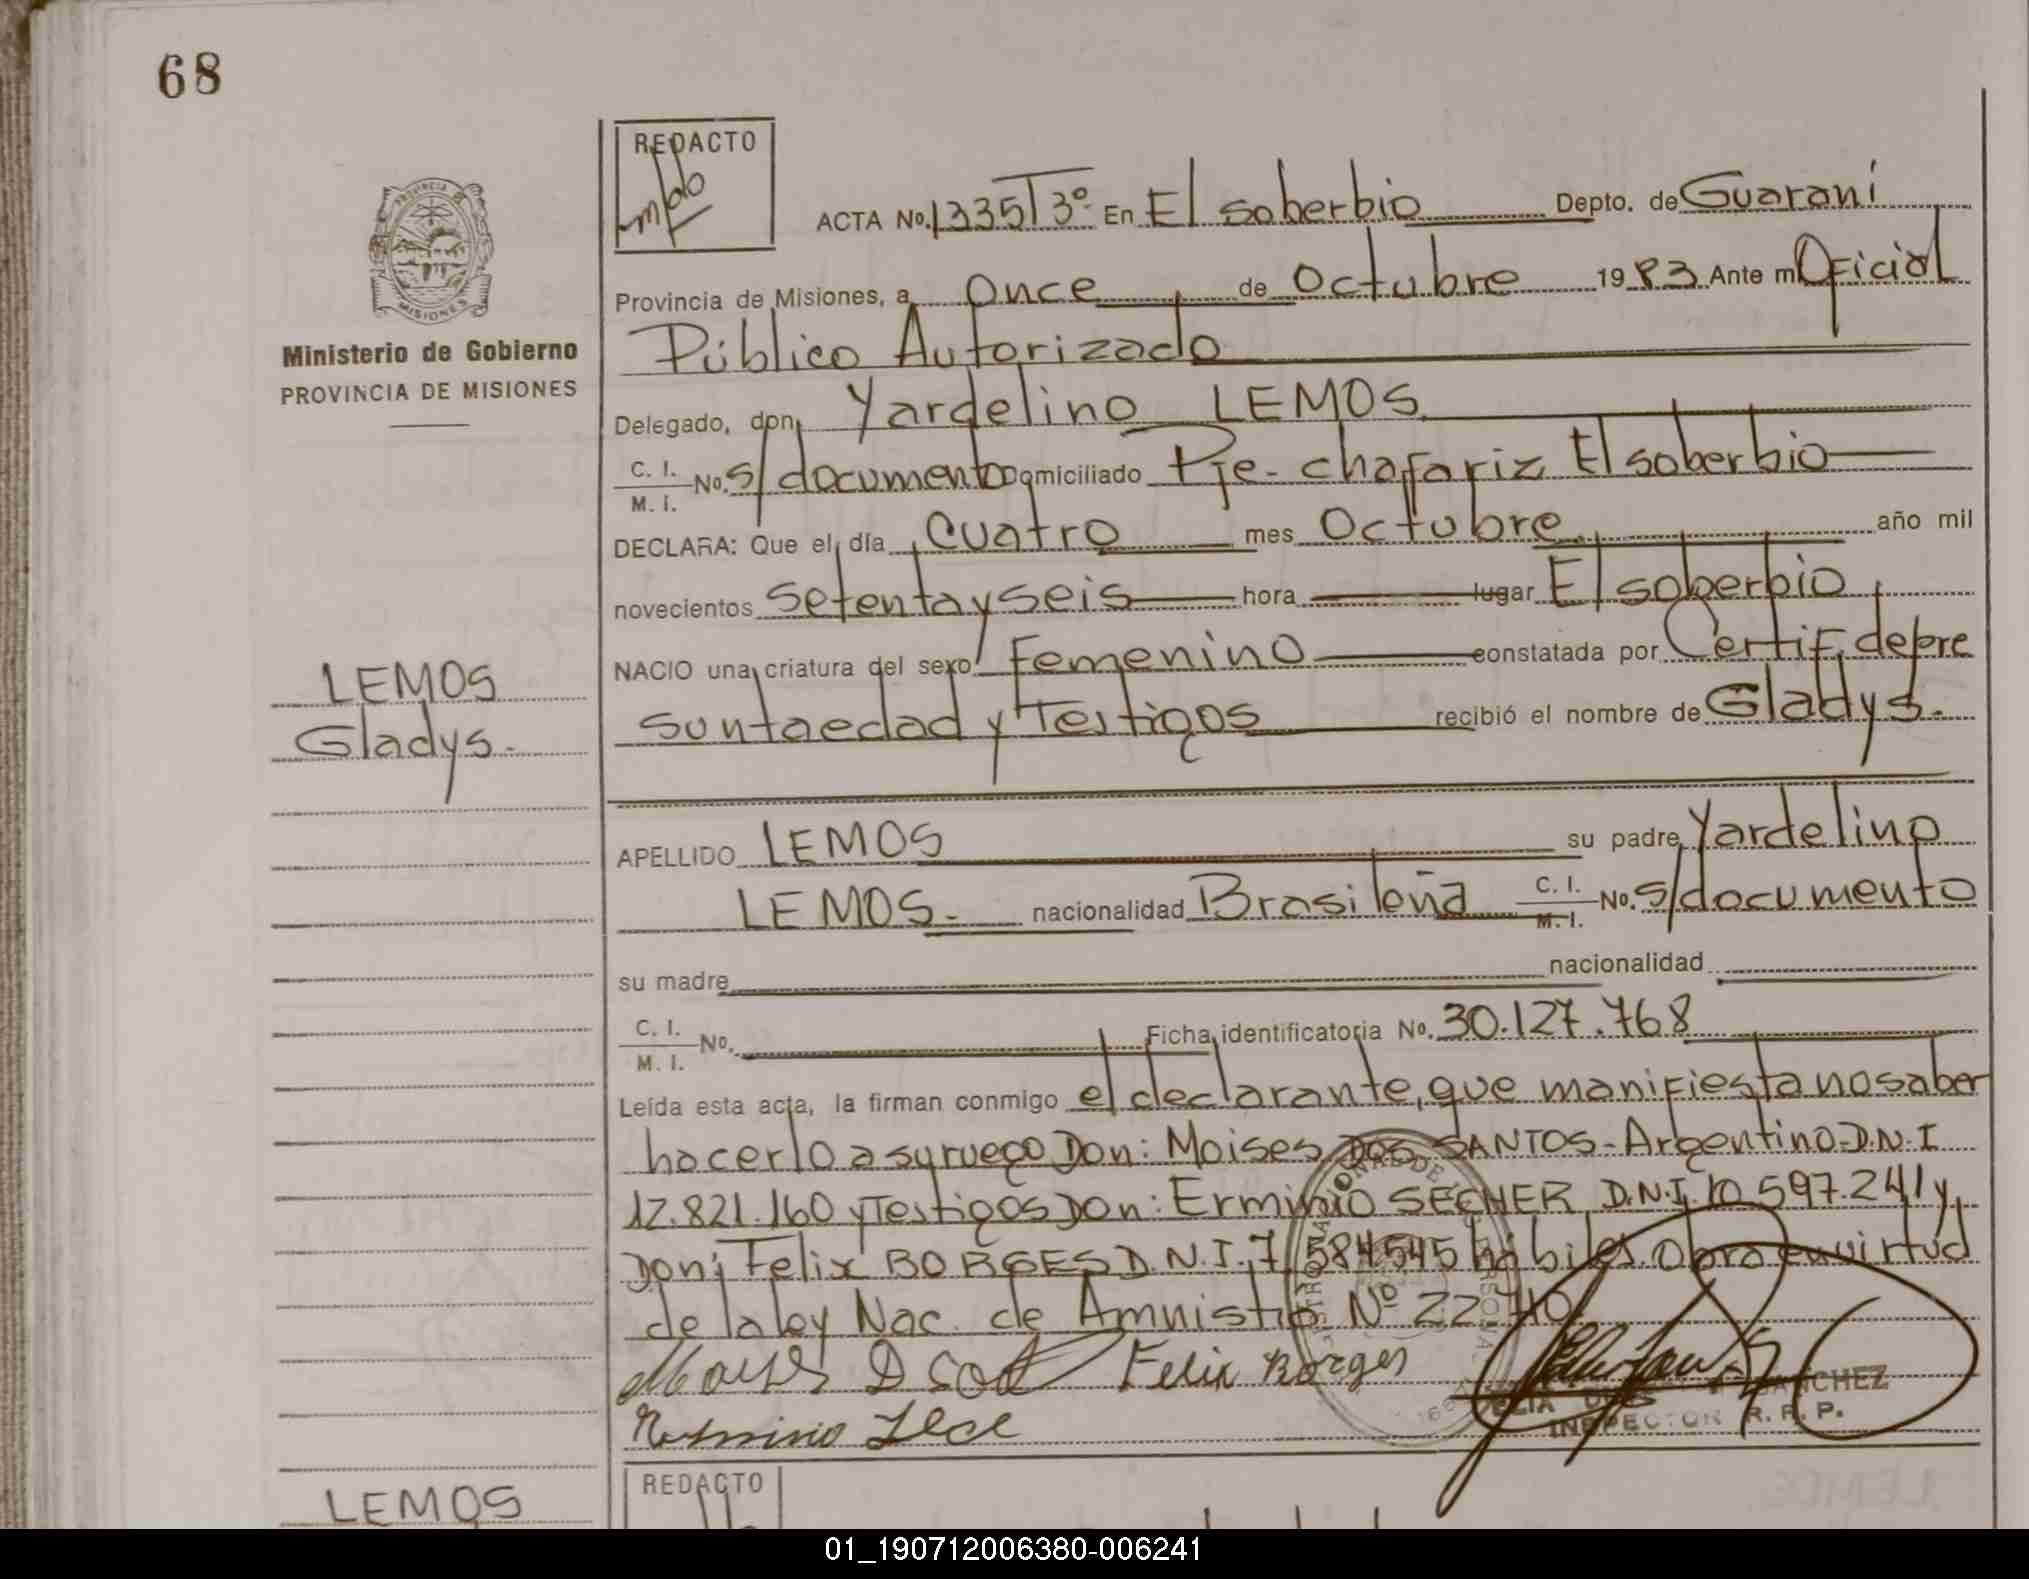 68
REDACTO
ACTA No. 1335 T 3º En El soberbio Depto. de Guaraní
Provincia de Misiones, a once de Octubre 1983 Ante mi Oficial
Público Autorizado
Ministerio de Gobierno
PROVINCIA DE MISIONES
Delegado, don Yardelino LEMOS
C. I. M. I. No. s/documento Domiciliado Pje- chafariz El soberbio
DECLARA: Que el día cuatro mes Octubre año mil
novecientos setenta y seis hora lugar El soberbio
NACIO una criatura del sexo femenino constatada por Certif. de pre
sunta edad y Testigos recibió el nombre de Gladys.
LEMOS
Gladys.-
APELLIDO LEMOS su padre Yardelino
LEMOS.- nacionalidad Brasileña C. I. M. I. No. s/documento
su madre nacionalidad
C. I. M. I. No. Ficha identificatoria No. 30.127.768
Leída esta acta, la firman conmigo el declarante, que manifiesta no saber
hacerlo a sy ruego Don: Moises DOS SANTOS-Argentino-D.N.I
12.821.160 y Testigos Don: Erminio SECHER D.N.I. 10 597.241 y
Don: Felix BORGES D.N.I. 7.584545 hábiles. Obra en virtud
de la ley Nac. de Amnistia Nº 22.710
Felix Borges
SANCHEZ
INSPECTOR R. P. P.
LEMOS
REDACTO
01_190712006380-006241